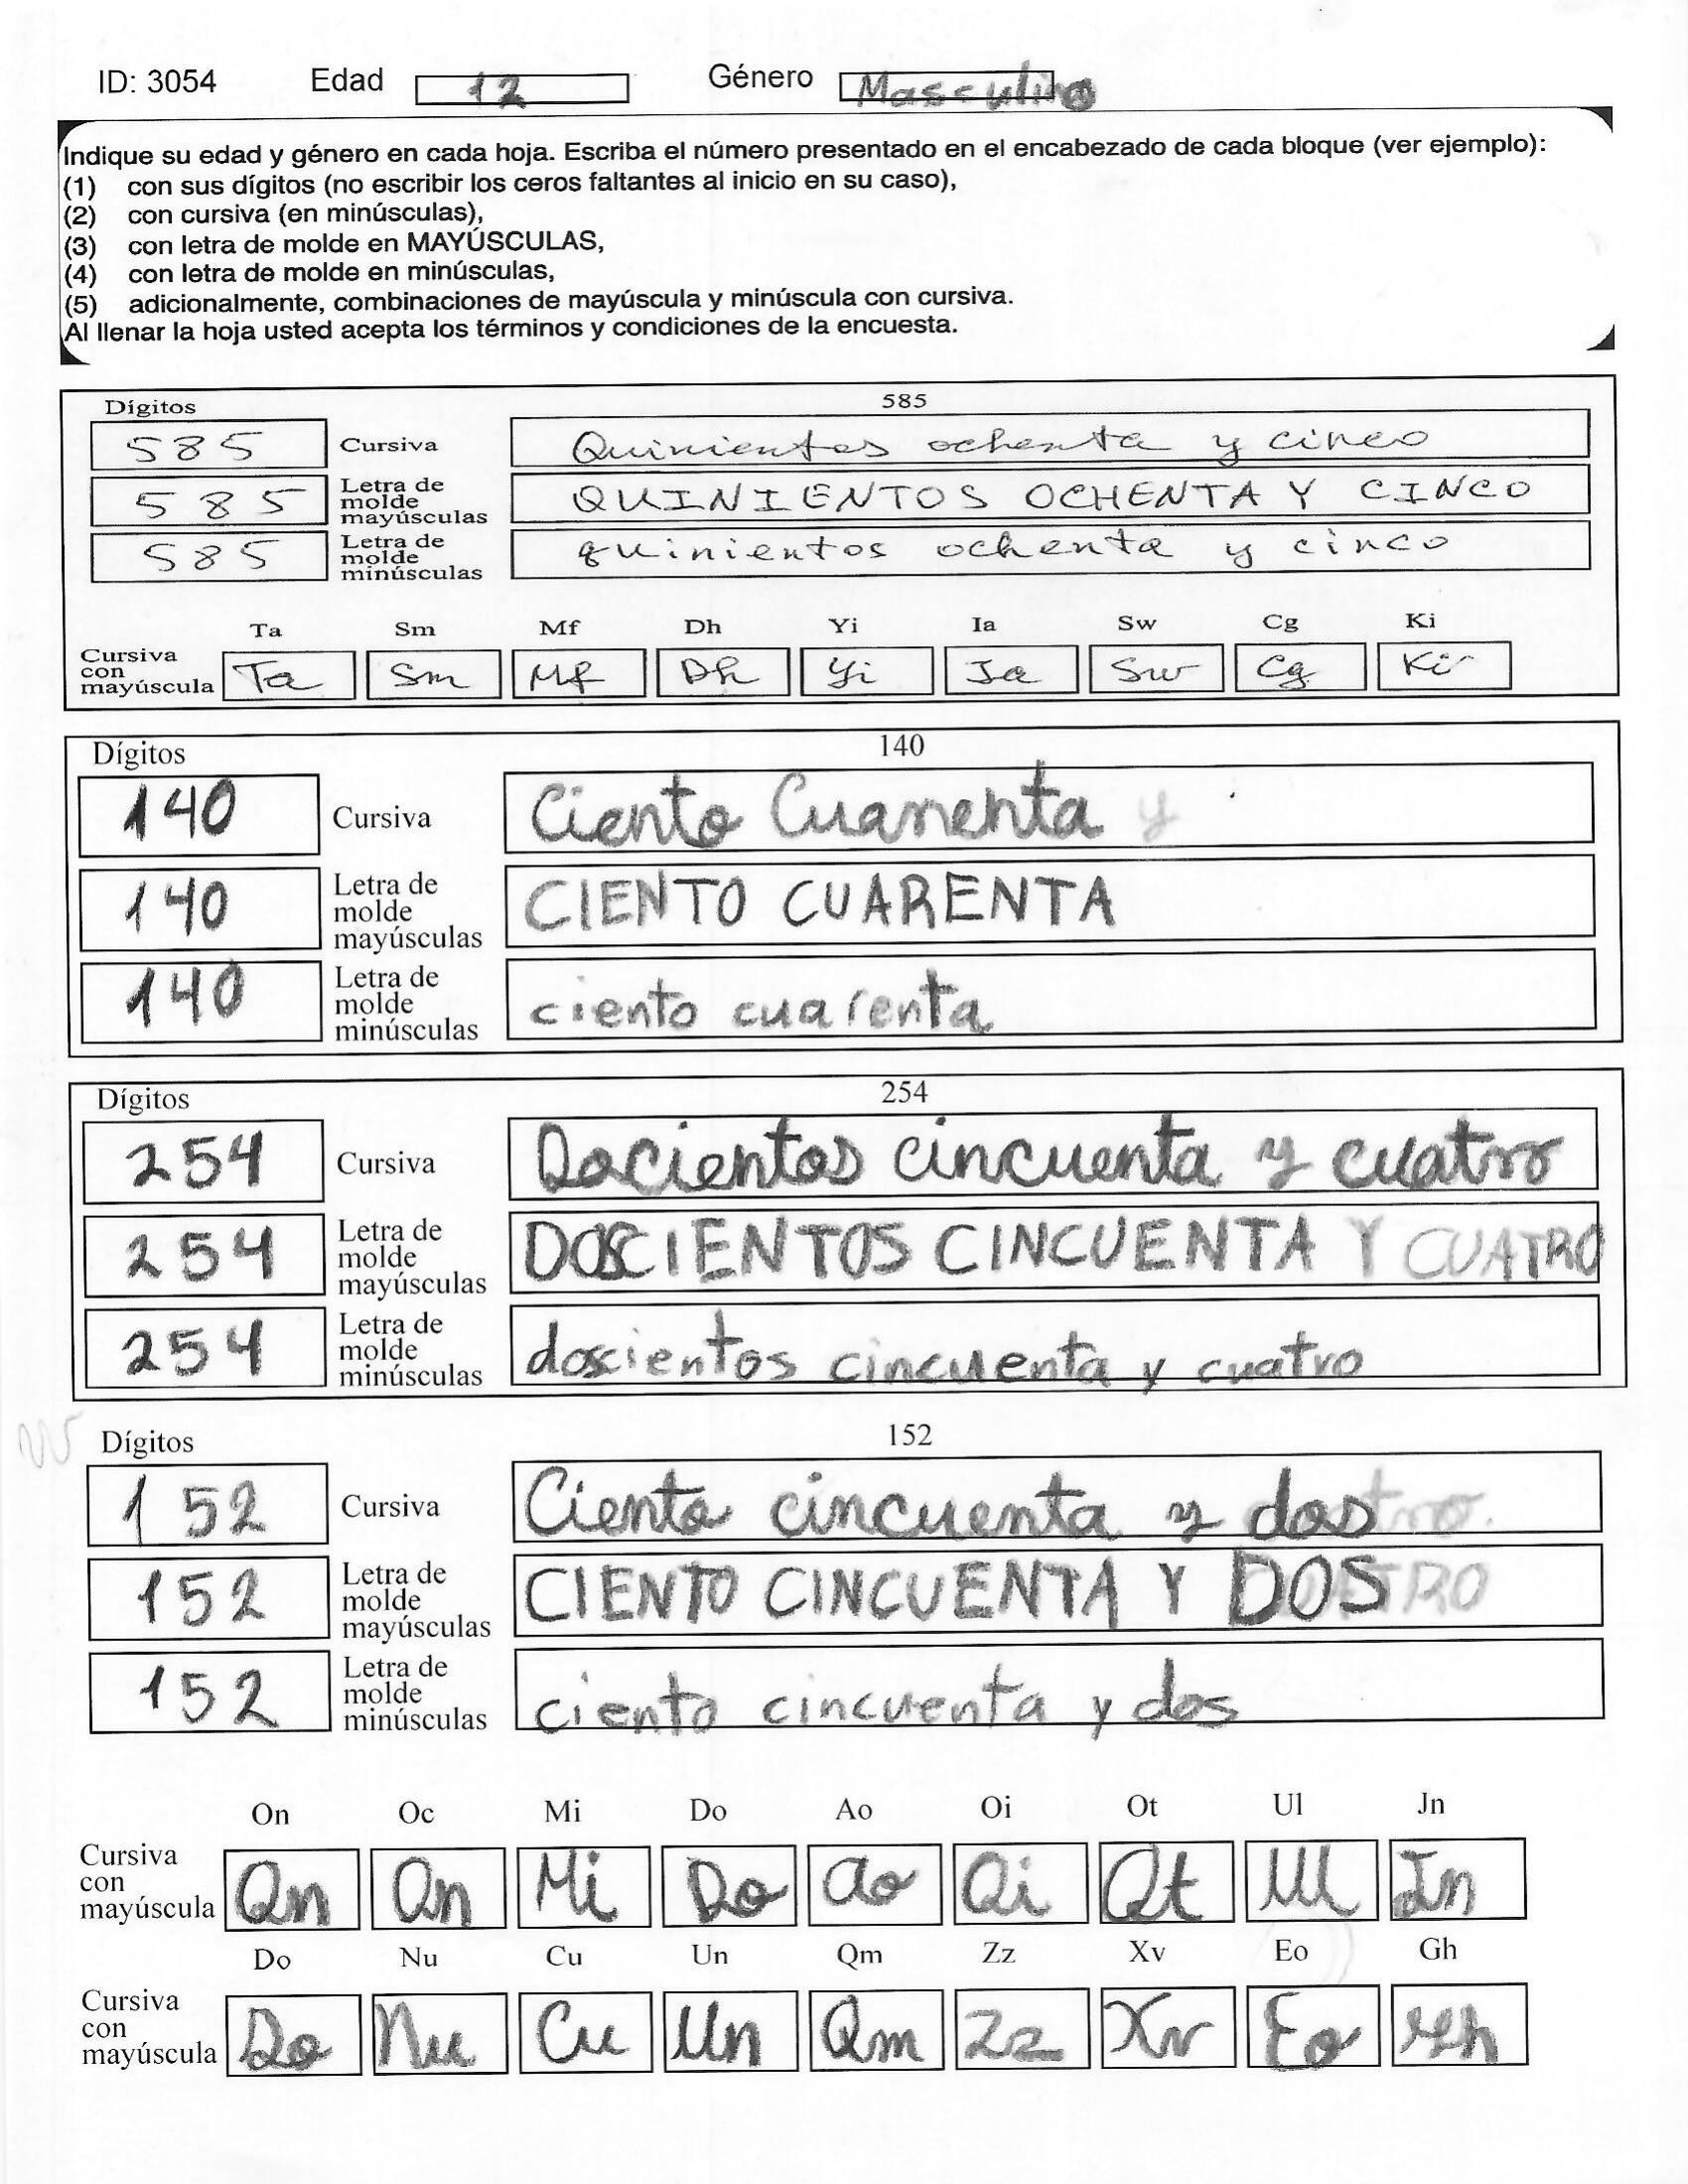 ID: 3054 Edad 12 Género Masculino
Indique su edad y género en cada hoja. Escriba el número presentado en el encabezado de cada bloque (ver ejemplo):
(1) con sus dígitos (no escribir los ceros faltantes al inicio en su caso),
(2) con cursiva (en minúsculas),
(3) con letra de molde en MAYÚSCULAS,
(4) con letra de molde en minúsculas,
(5) adicionalmente, combinaciones de mayúscula y minúscula con cursiva.
Al llenar la hoja usted acepta los términos y condiciones de la encuesta.
Dígitos 585
585 Cursiva Quinientos ochenta y cinco
585 Letra de molde mayúsculas QUINIENTOS OCHENTA Y CINCO
585 Letra de molde minúsculas quinientos ochenta y cinco
Ta Sm Mf Dh Yi Ia Sw Cg Ki
Cursiva con mayúscula Ta Sm Mf Dh Yi Ia Sw Cg Ki
Dígitos 140
140 Cursiva Ciento Cuarenta y
140 Letra de molde mayúsculas CIENTO CUARENTA
140 Letra de molde minúsculas ciento cuarenta
Dígitos 254
254 Cursiva Docientos cincuenta y cuatro
254 Letra de molde mayúsculas DOSCIENTOS CINCUENTA Y CUATRO
254 Letra de molde minúsculas doscientos cincuenta y cuatro
Dígitos 152
152 Cursiva Ciento cincuenta y dos
152 Letra de molde mayúsculas CIENTO CINCUENTA Y DOS
152 Letra de molde minúsculas ciento cincuenta y dos
On Oc Mi Do Ao Oi Ot Ul Jn
Cursiva con mayúscula On On Mi Do ao Oi Ot Ul Jn
Do Nu Cu Un Qm Zz Xv Eo Gh
Cursiva con mayúscula Do Nu Cu Un Qm Zz Xv Eo Gh